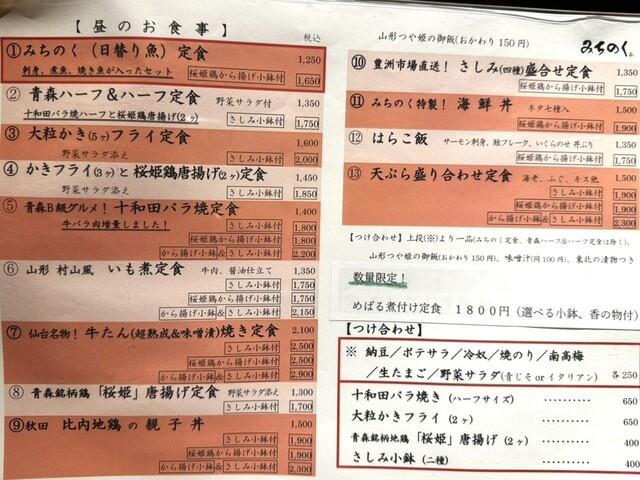 【昼のお食事】 税込
①みちのく(日替り魚)定食 1,250
刺身、煮魚、焼き魚が入ったセット 桜姫鶏から揚げ小鉢付 1,650
②青森ハーフ&ハーフ定食 野菜サラダ付 1,350
十和田バラ焼ハーフと桜姫鶏唐揚げ(2ヶ) さしみ小鉢付 1,750
③大粒かき(5ヶ)フライ定食 1,600
野菜サラダ添え さしみ小鉢付 2,000
④かきフライ(3ヶ)と桜姫鶏唐揚げ(2ヶ)定食 1,450
野菜サラダ添え さしみ小鉢付 1,850
⑤青森B級グルメ!十和田バラ焼定食 1,400
牛バラ肉増量しました! さしみ小鉢付 1,800
桜姫鶏から揚げ小鉢付 1,800
から揚げ小鉢&さしみ小鉢付 2,200
⑥山形 村山風 いも煮定食 牛肉、醤油仕立て 1,350
さしみ小鉢付 1,750
桜姫鶏から揚げ小鉢付 1,750
から揚げ小鉢&さしみ小鉢付 2,150
⑦仙台名物!牛たん(超熟成&味噌漬)焼き定食 2,100
さしみ小鉢付 2,500
桜姫鶏から揚げ小鉢付 2,500
から揚げ小鉢&さしみ小鉢付 2,900
⑧青森銘柄鶏「桜姫」唐揚げ定食 野菜サラダ添え 1,300
さしみ小鉢付 1,700
⑨秋田 比内地鶏の親子丼 1,500
さしみ小鉢付 1,900
桜姫鶏から揚げ小鉢付 1,900
から揚げ小鉢&さしみ小鉢付 2,300
山形つや姫の御飯(おかわり150円) みちのく。
⑩豊洲市場直送!さしみ(四種)盛合せ定食 1,350
桜姫鶏から揚げ小鉢付 1,750
⑪みちのく特製!海鮮丼 ネタ七種入 1,500
桜姫鶏から揚げ小鉢付 1,900
⑫はらこ飯 サーモン刺身、鮭フレーク、いくらのせ丼ぶり 1,350
桜姫鶏から揚げ小鉢付 1,750
⑬天ぷら盛り合わせ定食 海老、ふぐ、キス他 1,500
さしみ小鉢付 1,900
桜姫鶏から揚げ小鉢付 1,900
から揚げ小鉢&さしみ小鉢付 2,300
【つけ合わせ】上段(※)より一品(みちのく定食、青森ハーフ&ハーフ定食は除く)、
山形つや姫の御飯(おかわり150円)、味噌汁(同100円)、東北の漬物つき
数量限定!
めばる煮付け定食 1800円(選べる小鉢、香の物付)
【つけ合わせ】
※ 納豆/ポテサラ/冷奴/焼のり/南高梅
/生たまご/野菜サラダ(青じそorイタリアン) 各250
十和田バラ焼き(ハーフサイズ) ………… 650
大粒かきフライ(2ヶ) ………… 650
青森銘柄地鶏「桜姫」唐揚げ(2ヶ) ……… 400
さしみ小鉢(二種) ………… 400